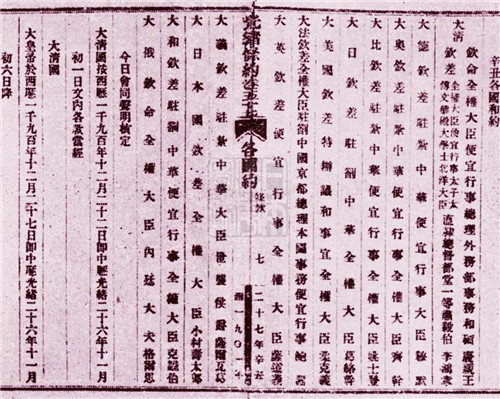 辛丑各國和約
大清欽命全權大臣便宜行事總理外務部事務和碩慶親王
欽差全權大臣便宜行事太子太傅文華殿大學士北洋大臣直隸總督部堂一等肅毅伯李鴻章
大德欽差駐紮中華便宜行事大臣穆默
大奧欽差駐紮中華便宜行事全權大臣齊幹
大比欽差駐紮中華便宜行事全權大臣姚士登
大日欽差駐劄中華全權大臣葛絡幹
大美國欽差特辦議和事宜全權大臣柔克義
大法欽差全權大臣駐劄中國京都總理本國事務便宜行事鮑
光緒條約
各國約
七
二十七年辛丑
西一九〇一
大英欽差便宜行事全權大臣薩道義
大義欽差駐紮中華大臣世襲侯爵薩爾瓦葛
大日本國欽差全權大臣小村壽太郎
大和欽差駐劄中華便宜行事全權大臣克羅伯
大俄欽命全權大臣內廷大夫格爾思
今日會同聲明核定
大清國按西歷一千九百年十二月二十二日即中歷光緒二十六年十一月
初一日文內各款當經
大清國
大皇帝於西歷一千九百年十二月二十七日即中歷光緒二十六年十一月
初六日降